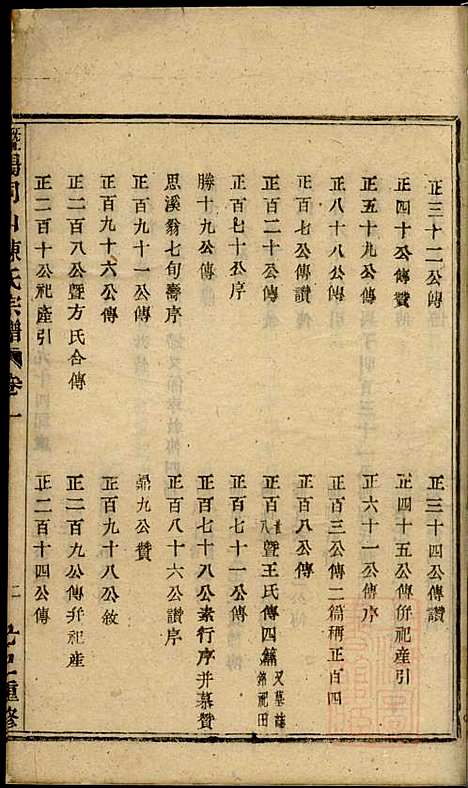 正三十二公傳　正三十四公傳
正四十公傳贊　正四十五公傳併祀產引
正五十九公傳　正六十一公傳序
正八十八公傳　正百三公傳二篇稱正百四
正百七公傳讚　正百八公傳
正百二十公傳　正百廿八暨王氏傳四篇又墓誌銘祀田
正百七十公序　正百七十一公傳
勝十九公序　正百七十八公素行序并墓贊
思溪翁七旬壽序　正百八十六公讚序
正百九十一公傳　鼎九公贊
正百九十六公傳　正百九十八公敘
正二百八公暨方氏合傳　正二百九公傳并祀產
正二百十公祀產引　正二百十四公傳
暨陽同山陳氏宗譜　卷一　重修